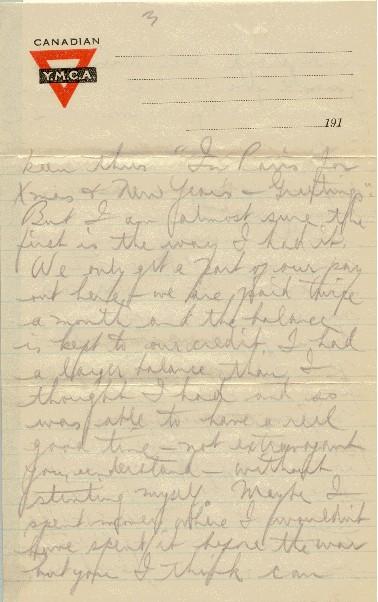 3
CANADIAN
Y.M.C.A
191
been thus "In Paris for
Xmas & New Year's - Greetings".
But I am almost sure the
first is the way I had it.
We only get a part of our pay
out here - we are paid twice
a month and the balance
is kept to our credit. I had
a larger balance than I
thought I had and so
was able to have a real
good time - not extravagant
you understand - without
stinting myself. Maybe I
spent money where I wouldn't
have spent it before the war
but you I think can